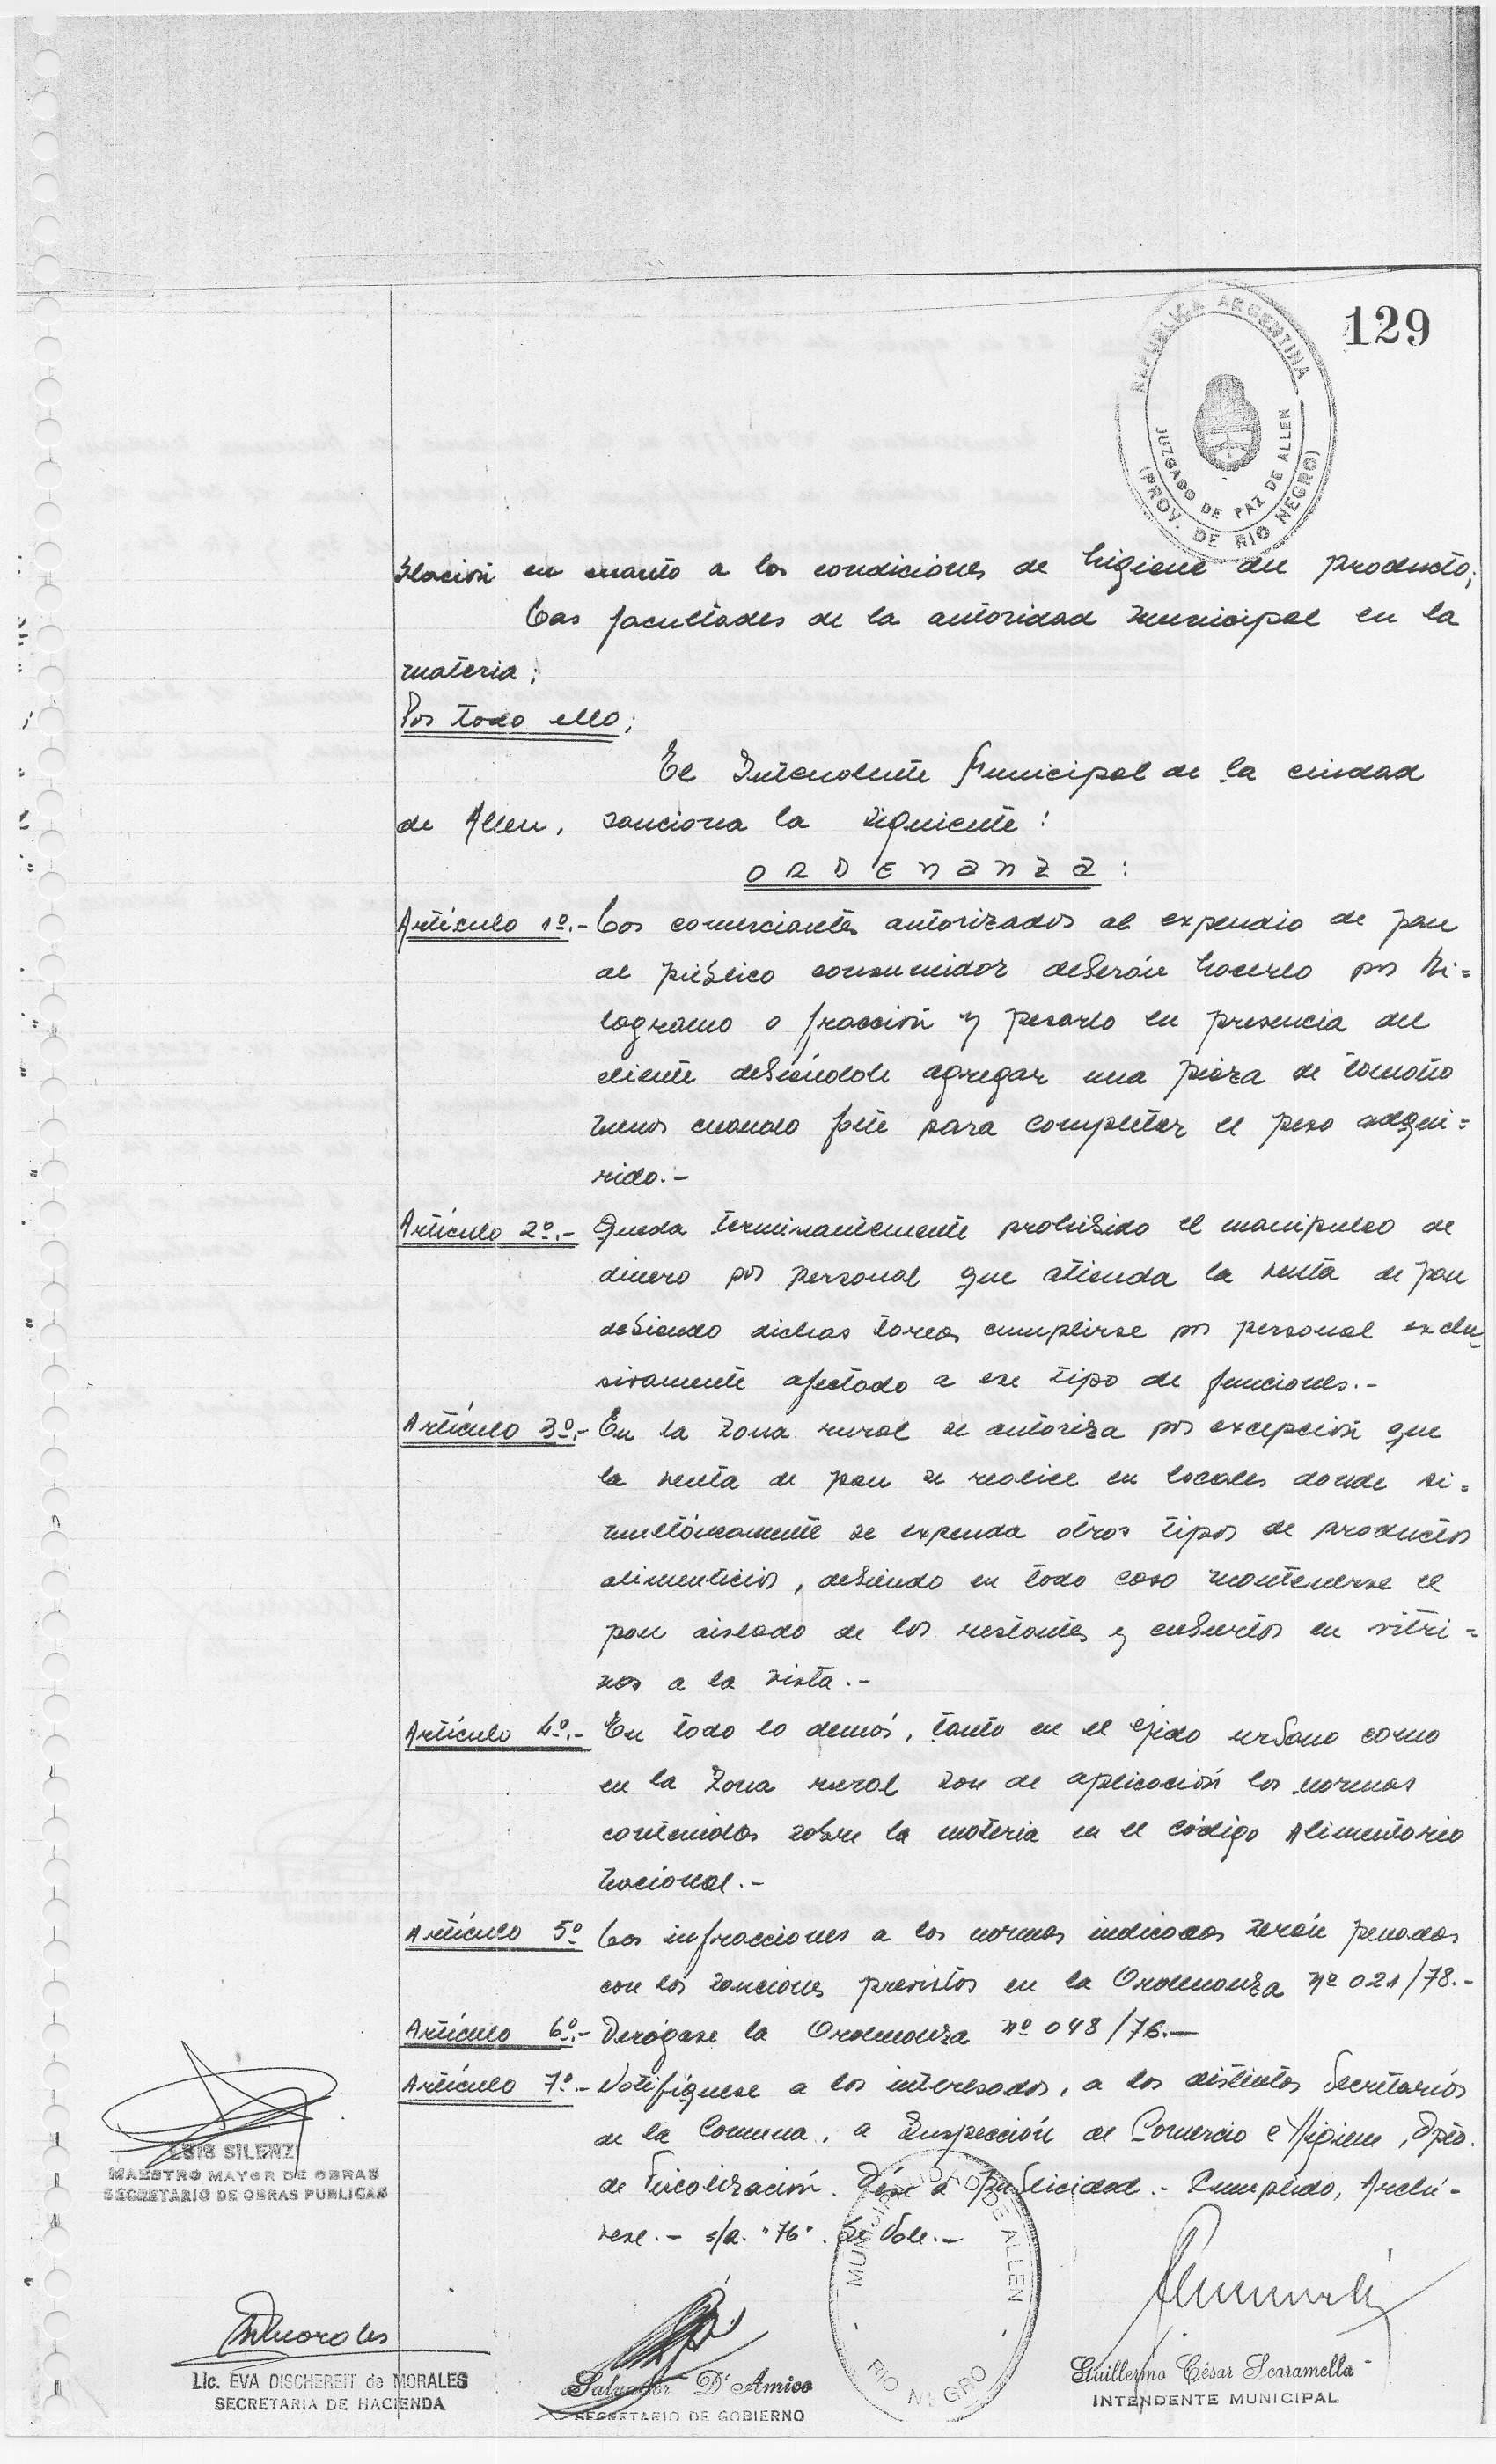 129
REPUBLICA ARGENTINA
JUZGADO DE PAZ DE ALLEN
(PROV. DE RIO NEGRO)
slación en cuanto a las condiciones de higiene del producto;
Las facultades de la autoridad municipal en la
materia;
Por todo ello;
El Intendente Municipal de la ciudad
de Allen, sanciona la siguiente:
ORDENANZA:
Artículo 1º.- Los comerciantes autorizados al expendio de pan
al público consumidor deberán hacerlo por ki=
logramo o fracción y pesarlo en presencia del
cliente debiéndole agregar una pieza de tamaño
menor cuando falte para completar el peso adqui=
rido.-
Artículo 2º.- Queda terminantemente prohibido el manipuleo de
dinero por personal que atienda la venta de pan
debiendo dichas tareas cumplirse por personal exclu_
sivamente afectado a ese tipo de funciones.-
Artículo 3º.- En la zona rural se autoriza por excepción que
la venta de pan se realice en locales donde si=
multáneamente se expenda otros tipos de productos
alimenticios, debiendo en todo caso mantenerse el
pan aislado de los restantes y cubiertos en vitri=
nas a la vista.-
Artículo 4º.- En todo lo demás, tanto en el ejido urbano como
en la zona rural son de aplicación las normas
contenidas sobre la materia en el Código Alimentario
Nacional.-
Artículo 5º Las infracciones a las normas indicadas serán penadas
con las sanciones previstas en la Ordenanza nº 021/78.-
Artículo 6º.- Derógase la Ordenanza nº 048/76.-
Artículo 7º.- Notifíquese a los interesados, a los distintos Secretarios
de la Comuna, a Inspección de Comercio e Higiene, Dpto.
de Fiscalización. Dése a Publicidad.- Cumplido, Archí-
vese.- s/r. "76". Si Vale.-
LUIS SILENZI
MAESTRO MAYOR DE OBRAS
SECRETARIO DE OBRAS PUBLICAS
MUNICIPALIDAD DE ALLEN
RIO NEGRO
Lic. EVA DISCHEREIT de MORALES
SECRETARIA DE HACIENDA
Salvador D'Amico
SECRETARIO DE GOBIERNO
Guillermo César Scaramella
INTENDENTE MUNICIPAL